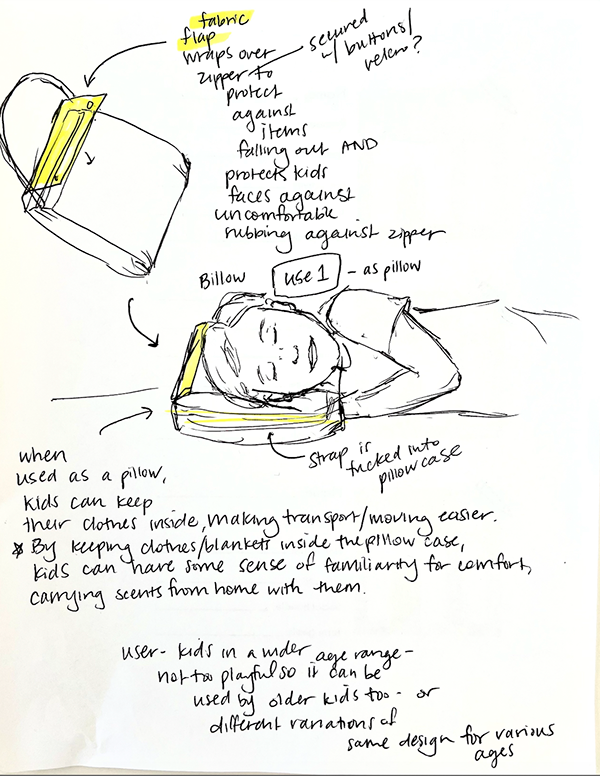 fabric
flap
wraps over
zipper to
protect
against
items
falling out AND
protects kids
faces against
uncomfortable
rubbing against zipper
secured
w/ buttons/
velcro?
Billow
use 1
- as pillow
strap is
tucked into
pillowcase
when
used as a pillow,
kids can keep
their clothes inside, making transport/moving easier.
* By keeping clothes/blankets inside the pillow case,
kids can have some sense of familiarity for comfort,
carrying scents from home with them.
user - kids in a wider age range -
not too playful so it can be
used by older kids too - or
different variations of
same design for various
ages